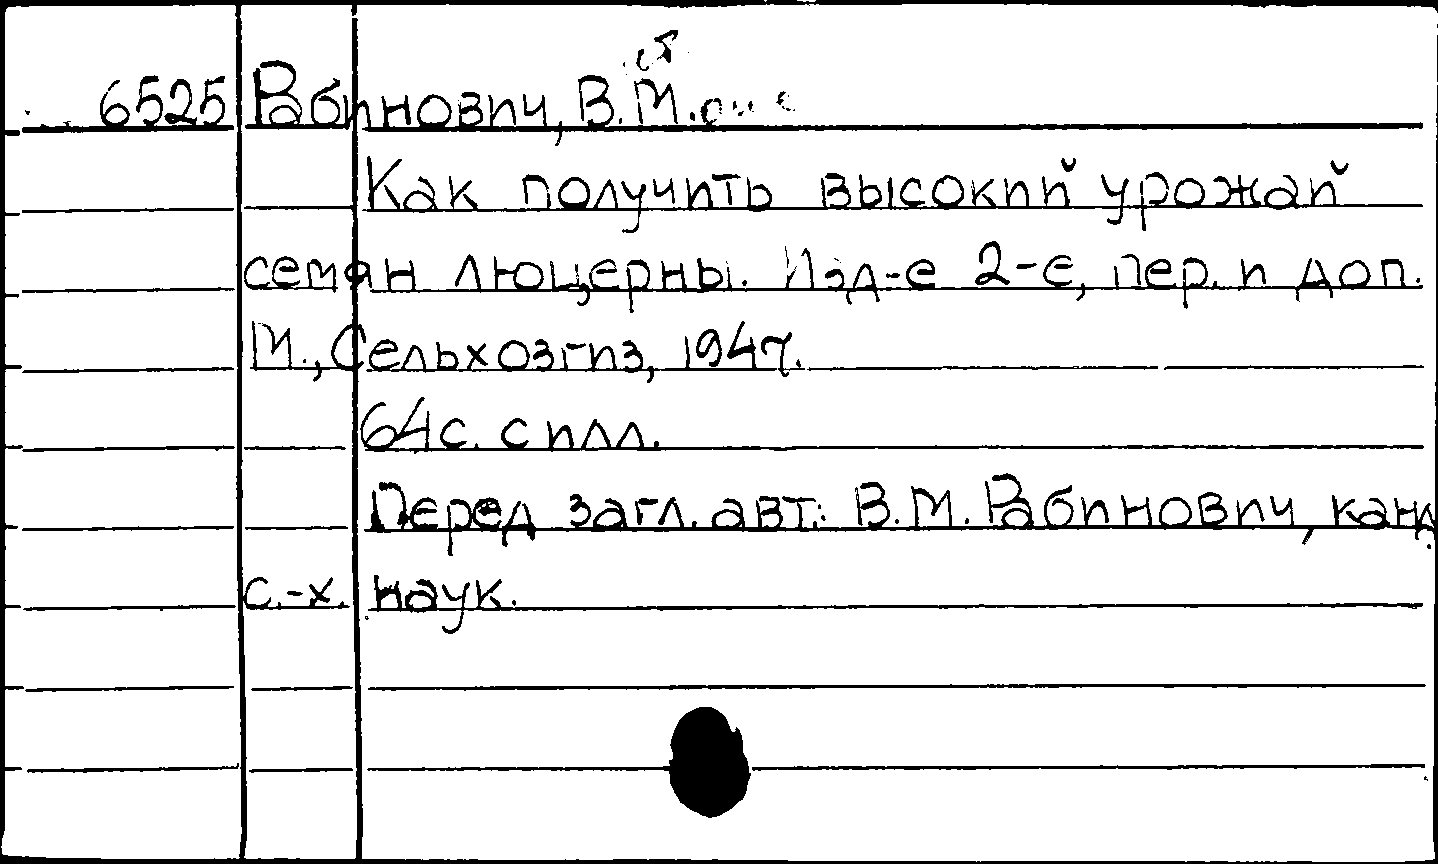 6525 Рабинович, В.М.
Как получить высокий урожай
семян люцерны. Изд-е 2-е, пер. и доп.
М., Сельхозгиз, 1947.
64с. с илл.
Перед загл. авт.: В.М. Рабинович, канд
с.-х. наук.